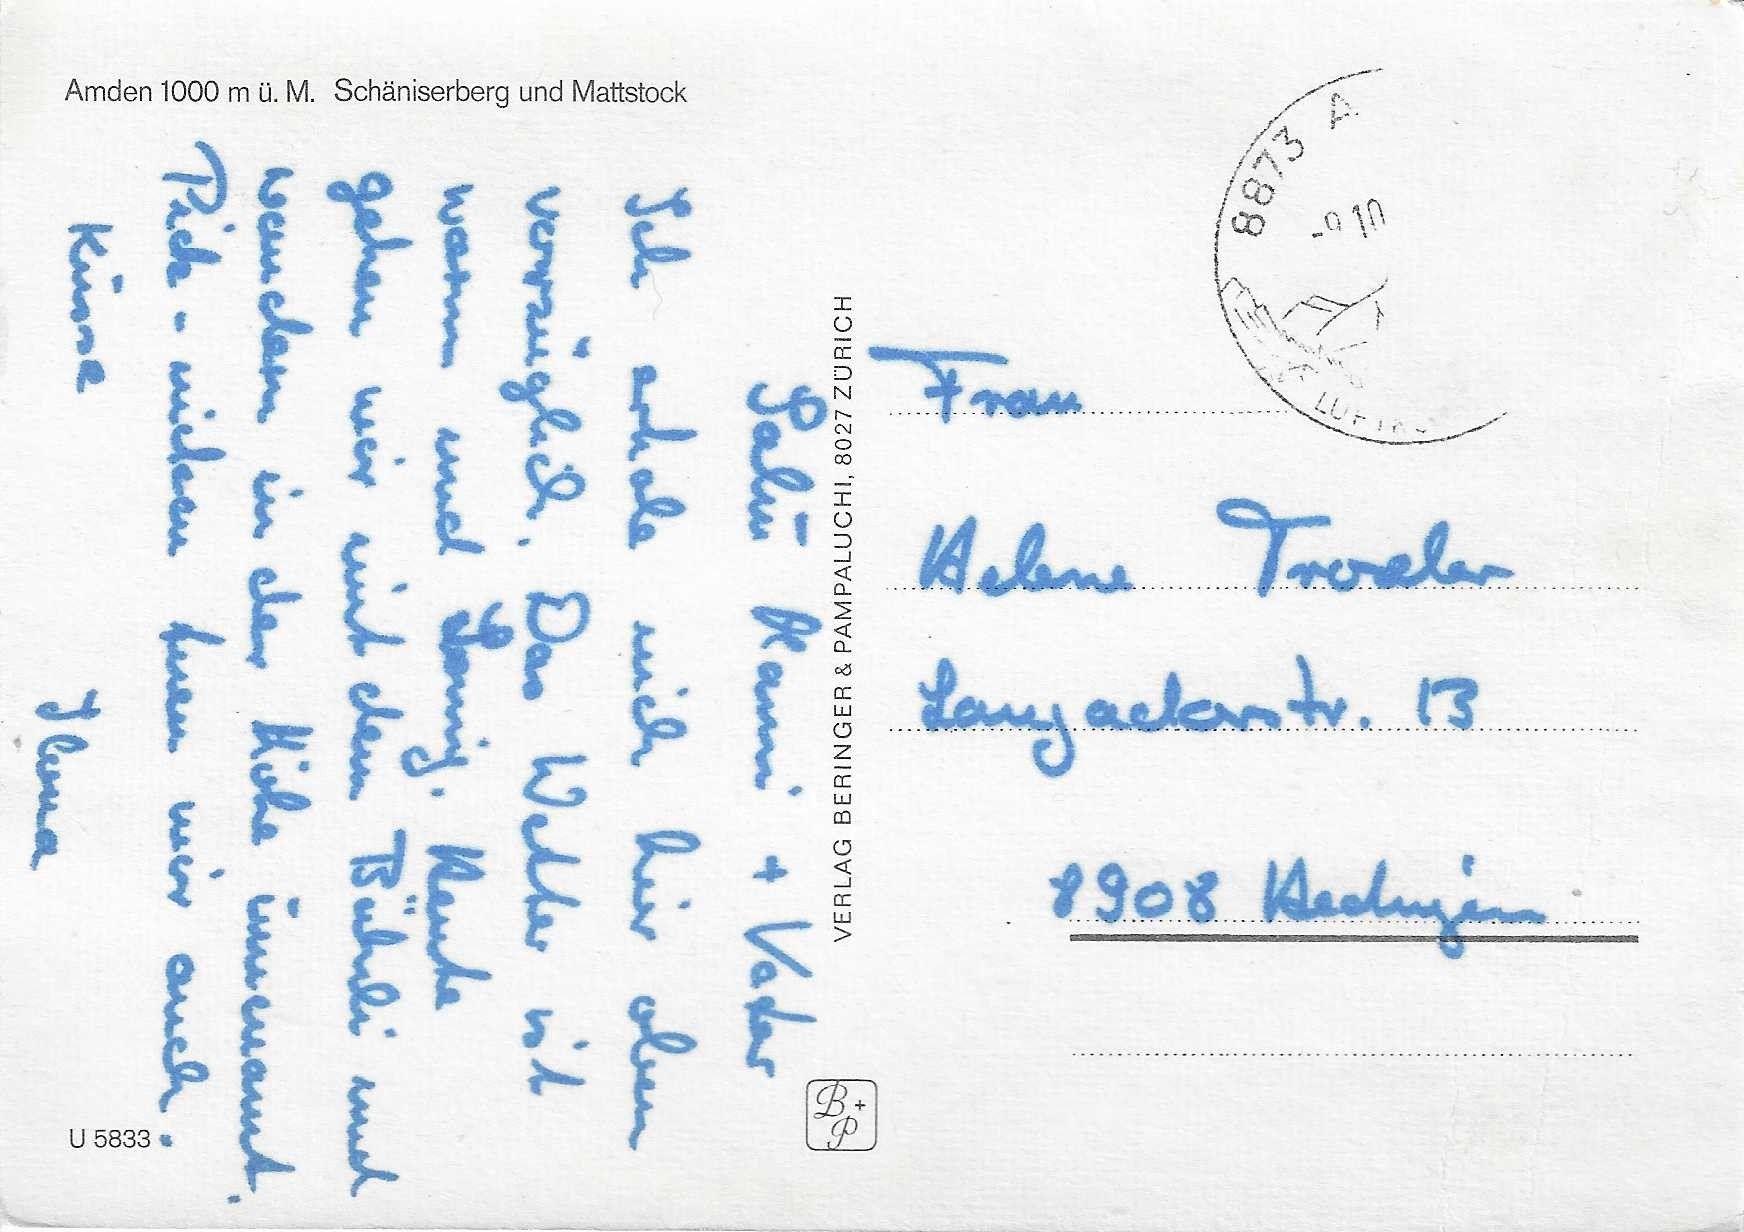 Amden 1000 m ü. M. Schäniserberg und Mattstock
Salü Mami + Vater
Ich erhole mich hier oben
vorzüglich. Das Wetter ist
warm und Sonnig. Heute
gehen wir mit dem Bähnli und
wandern in der Höhe umenant.
Pick-nicken tuen wir auch.
Küsse
VERLAG BERINGER & PAMPALUCHI, 8027 ZÜRICH
8873 A
-9.10
LUFTK
Frau
Helene Troxler
Langackerstr. 13
8908 Hedingen
B+P
U 5833